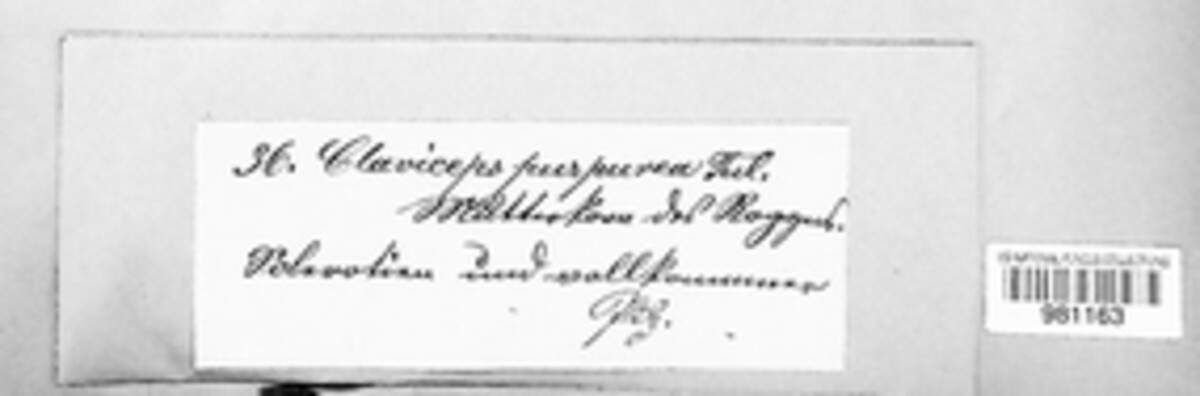 36. Claviceps purpurea Tul.
Mutterkorn des Roggens.
Sclerotien und vollkommener
Pilz.
981163